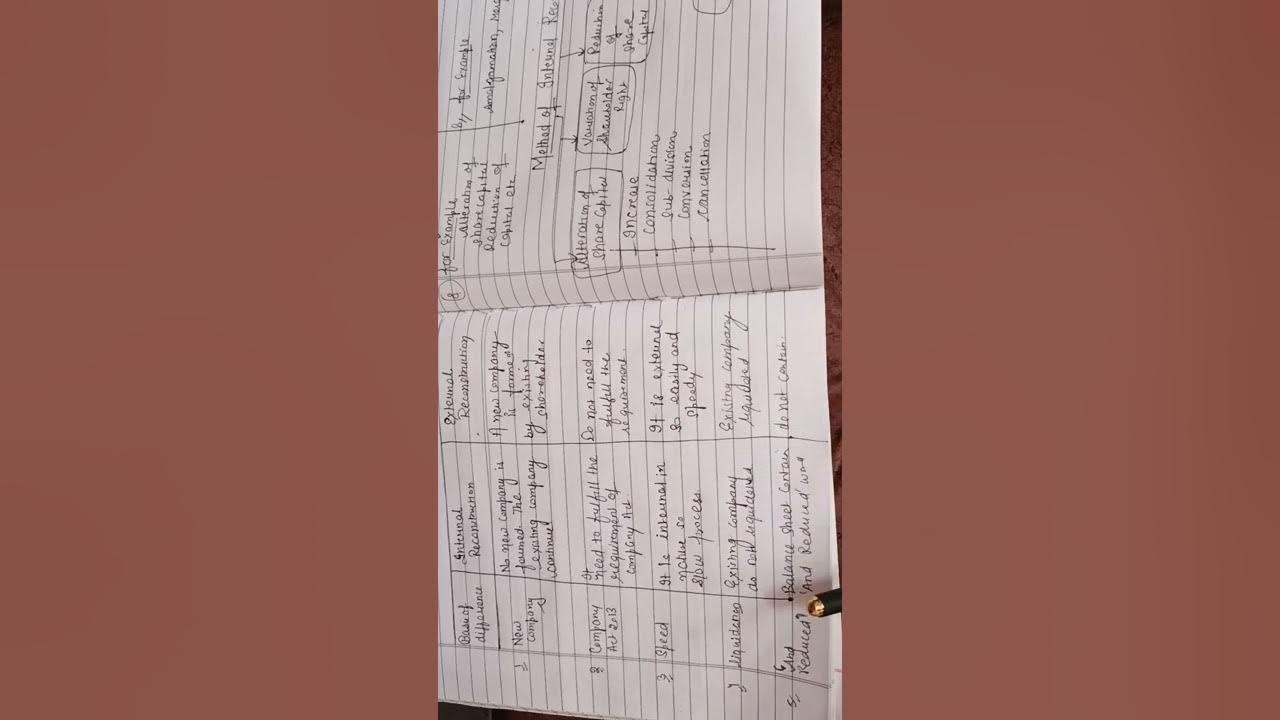 Basis of difference
Internal Reconstruction
External Reconstruction
1) New company
No new company is
formed. The
existing company
continued
A new company
is formed
by existing
shareholder
2) Company
Act 2013
It
need to fulfill the
requirement of
company Act
Do not need to
fulfill the
requirement.
3) Speed
It is internal in
nature so
slow process
It is external
so easily and
speedy
liquidation
Existing company
do not liquidated
Existing company
liquidated
5) "And
Reduced"
Balance sheet contain
"And Reduced word"
do not contain.
8) for Example
Alteration of
share capital
Reduction of
capital etc
for Example
Amalgamation,
Method of Internal
Alteration of
share capital
Variation of
shareholder
Right
Reduction
of
share
capital
Increase
Consolidation
sub-division
conversion
cancellation